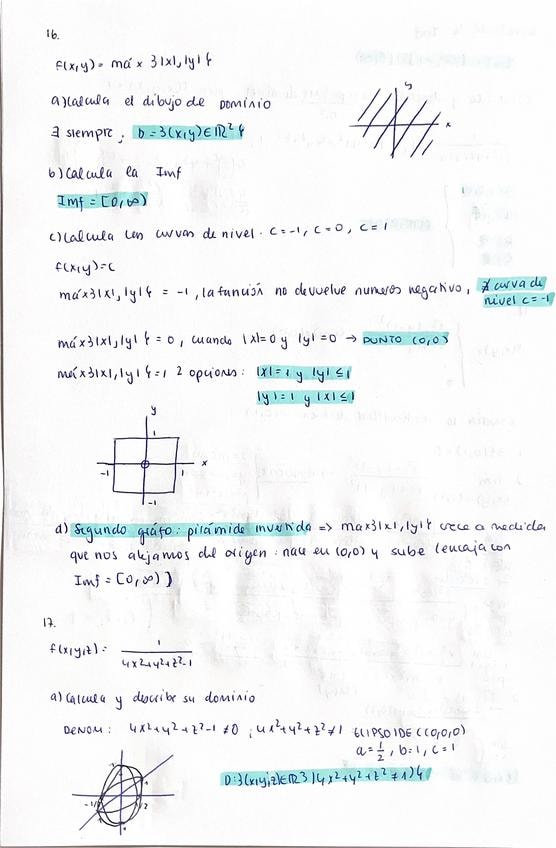 16.
f(x,y) = máx 3|x|,|y|4
a) Calcula el dibujo de dominio
y
x
∃ siempre, D = 3(x,y)∈ℝ²4
b) Calcula la Imf
Imf = [0,∞)
c) Calcula las curvas de nivel. C=-1, C=0, C=1
f(x,y)=c
máx3|x|,|y|4 = -1, la función no devuelve numeros negativo, ∄ curva de
nivel c=-1
máx3|x|,|y|4 = 0, cuando |x|=0 y |y|=0 → PUNTO (0,0)
máx3|x|,|y|4 = 1 2 opciones: |x|=1 y |y|≤1
|y|=1 y |x|≤1
y
1
-1 1 x
-1
d) Segundo gráfo: pirámide invertida => max3|x|,|y|4 crece a medida
que nos alejamos del origen: nace en (0,0) y sube (encaja con
Imf = [0,∞))
17.
f(x,y,z) = 1
4x²+y²+z²-1
a) Calcula y describe su dominio
DENOM: 4x²+y²+z²-1 ≠0 ; 4x²+y²+z² ≠1 ELIPSOIDE C(0,0,0)
a = 1/2, b=1, c=1
D:3(x,y,z)∈ℝ3 | 4x²+y²+z² ≠ 1)4
1
-1/2 1/2